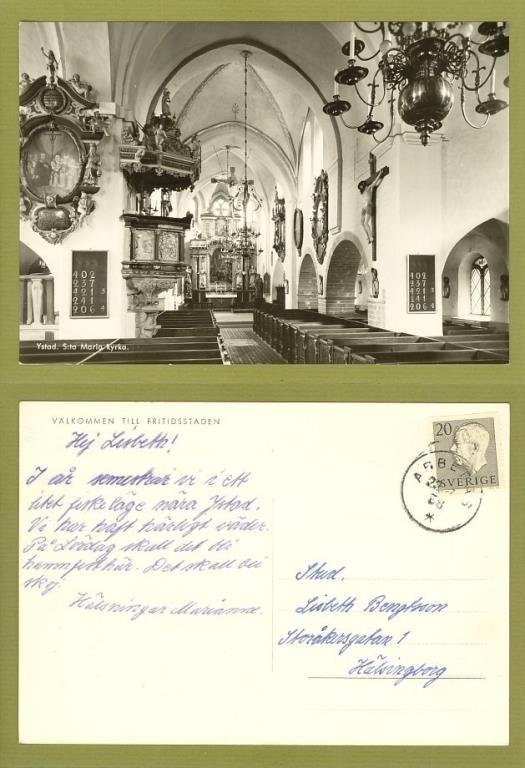 402
Ystad. S:ta Maria kyrka.
VÄLKOMMEN TILL FRITIDSSTADEN
Hej Lisbeth!
I år semestrar vi i ett
litet fiskeläge nära Ystad.
Vi har haft härligt väder.
På Lördag skall det bli
hamnfest här. Det skall bli
skoj.
Hälsningar Marianne.
20
SVERIGE
Stud.
Lisbeth Bengtsson
Storåkersgatan 1
Hälsingborg